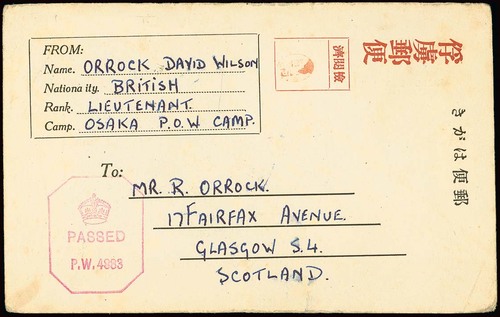 FROM:
Name. ORROCK DAVID WILSON
Nationality. BRITISH
Rank. LIEUTENANT
Camp. OSAKA P.O.W CAMP.
俘虜郵便
検閲済
郵便はがき
To: MR. R. ORROCK.
17 FAIRFAX AVENUE.
GLASGOW S.4.
SCOTLAND.
PASSED
P.W. 4993